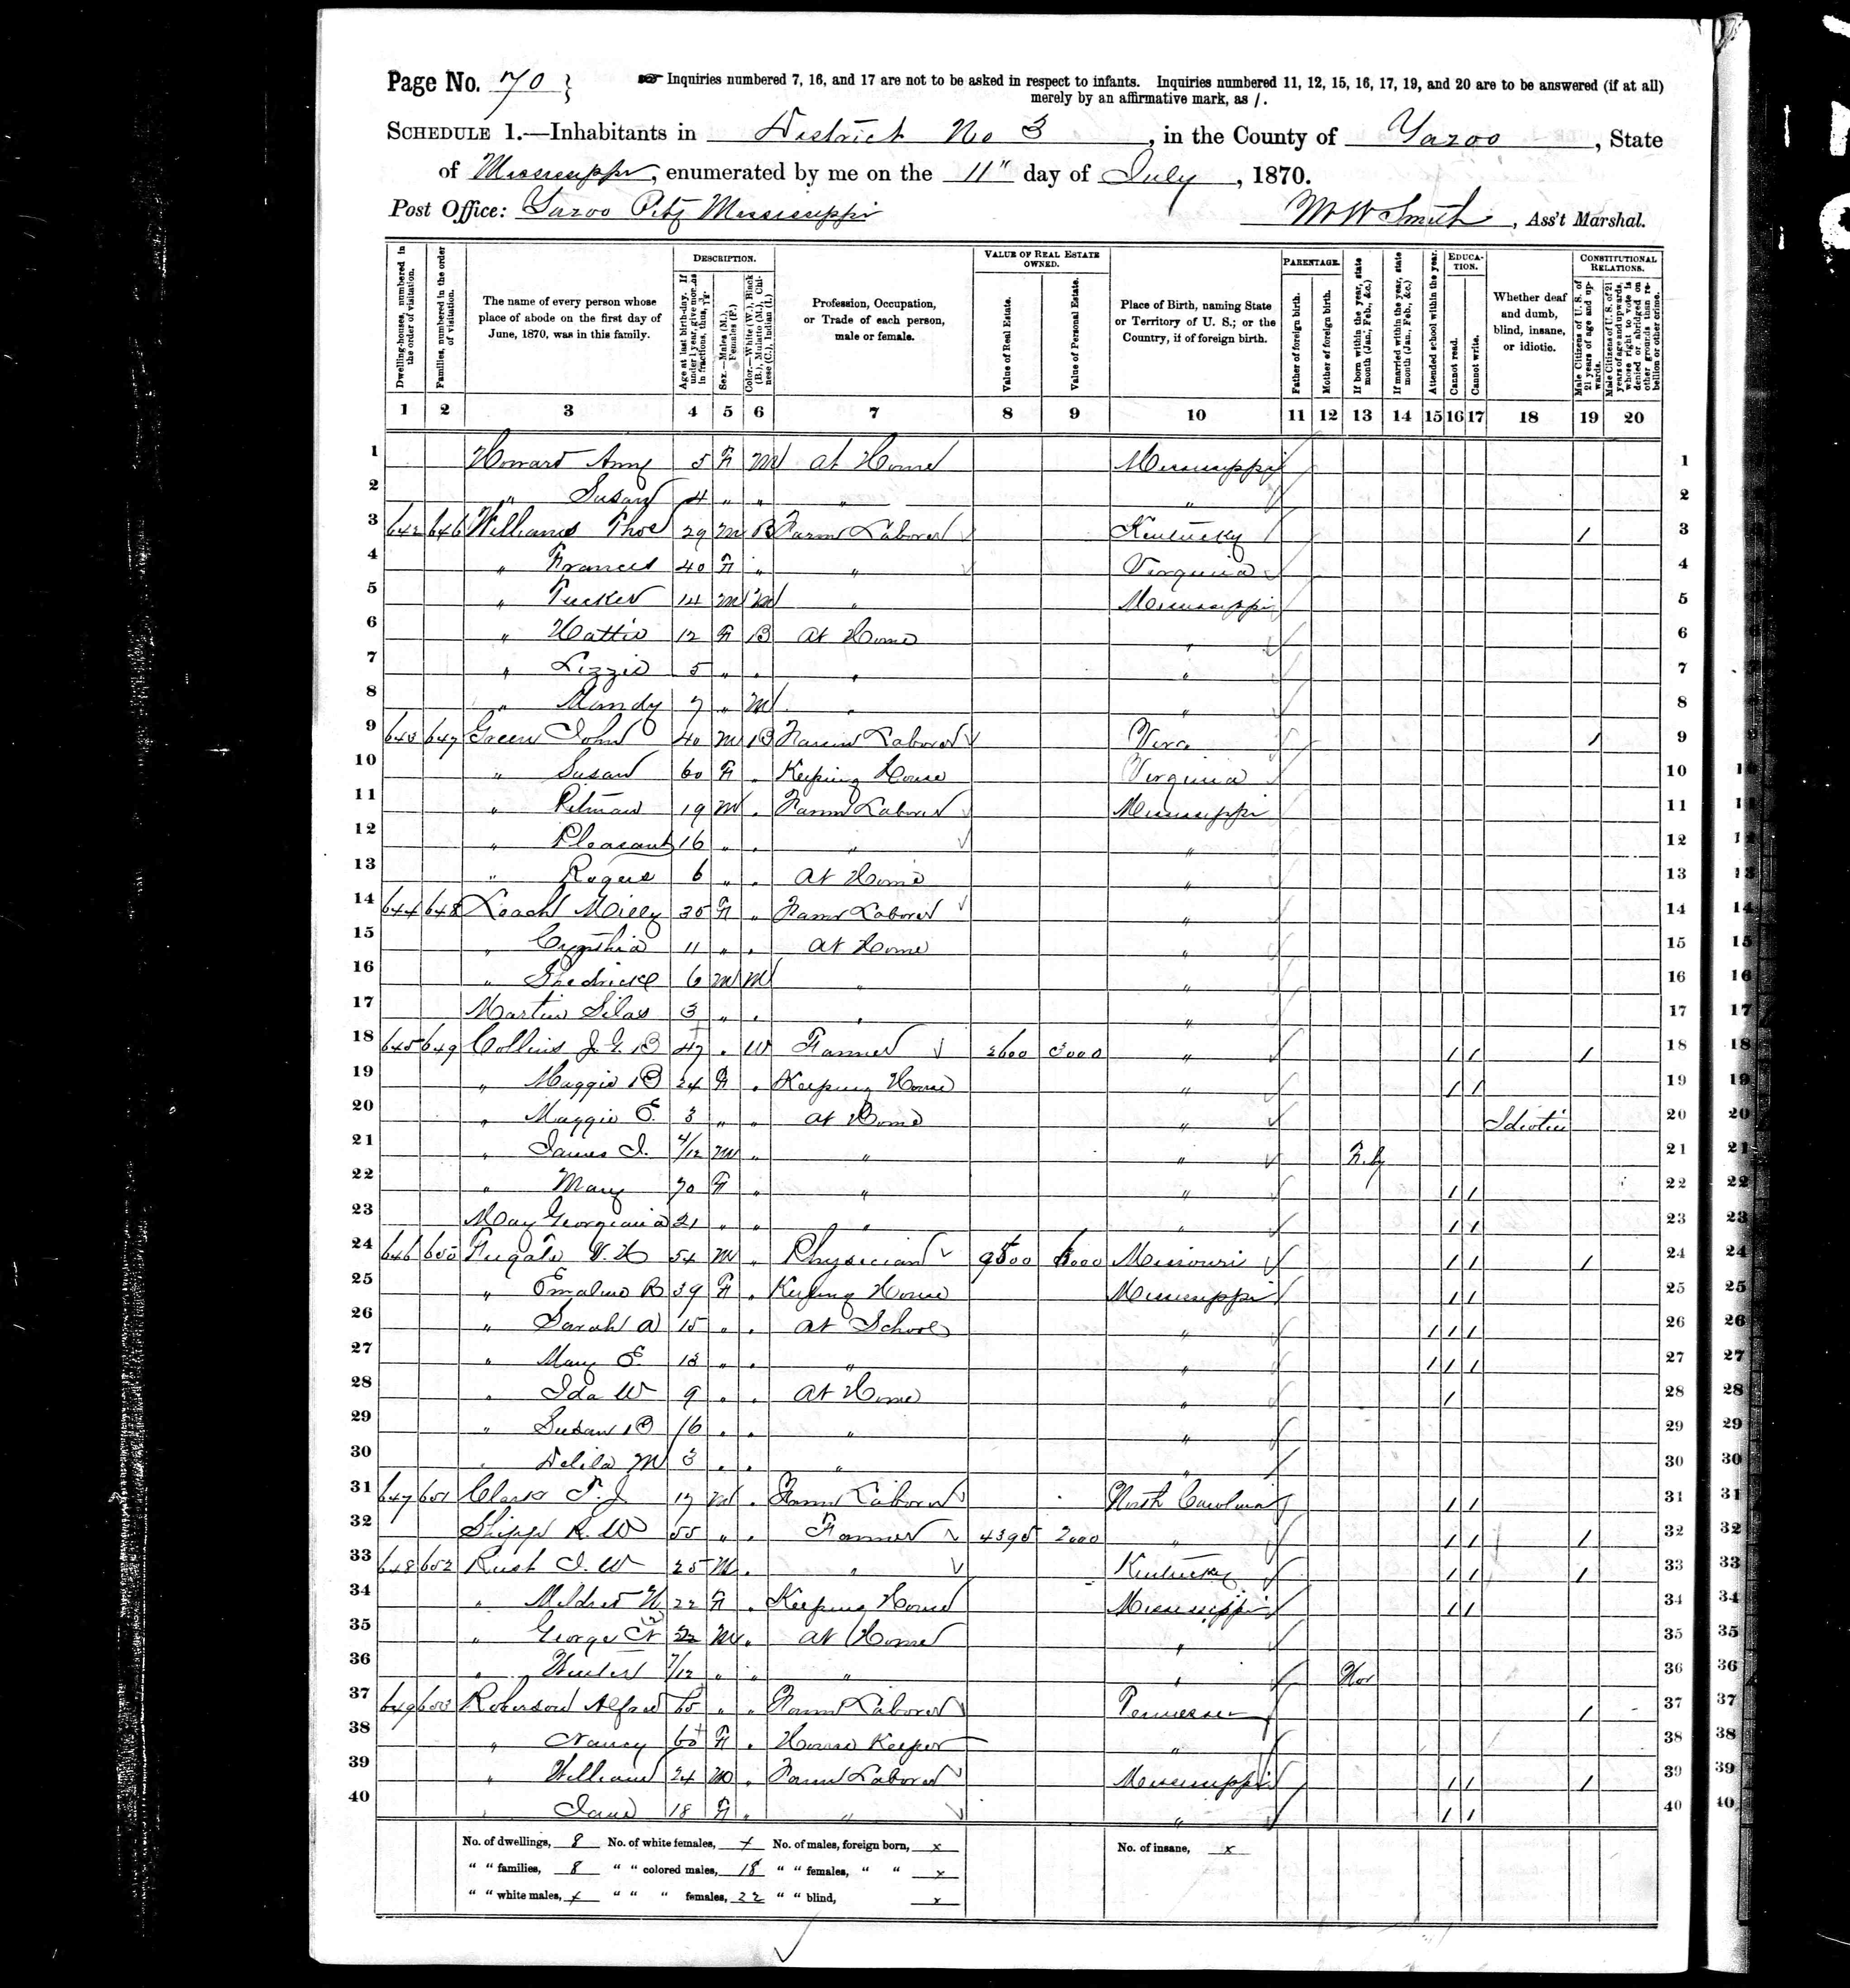 Page No. 70 } Inquiries numbered 7, 16, and 17 are not to be asked in respect to infants. Inquiries numbered 11, 12, 15, 16, 17, 19, and 20 are to be answered (if at all)
merely by an affirmative mark, as /.
SCHEDULE 1.—Inhabitants in District No 3, in the County of Yazoo, State
of Mississippi, enumerated by me on the 11" day of July, 1870.
Post Office: Yazoo City Mississippi W W Smith, Ass't Marshal.
Dwelling-houses, numbered in the order of visitation.
Families, numbered in the order of visitation.
The name of every person whose place of abode on the first day of June, 1870, was in this family.
DESCRIPTION.
Age at last birth-day. If under 1 year, give months in fractions, thus, 3/12.
Sex.—Males (M.), Females (F.)
Color.—White (W.), Black (B.), Mulatto (M.), Chinese (C.), Indian (I.)
Profession, Occupation, or Trade of each person, male or female.
VALUE OF REAL ESTATE OWNED.
Value of Real Estate.
Value of Personal Estate.
Place of Birth, naming State or Territory of U. S.; or the Country, if of foreign birth.
PARENTAGE.
Father of foreign birth.
Mother of foreign birth.
If born within the year, state month (Jan., Feb., &c.)
If married within the year, state month (Jan., Feb., &c.)
Attended school within the year.
EDUCATION.
Cannot read.
Cannot write.
Whether deaf and dumb, blind, insane, or idiotic.
CONSTITUTIONAL RELATIONS.
Male Citizens of U. S. of 21 years of age and upwards.
Male Citizens of U. S. of 21 years of age and upwards, whose right to vote is denied or abridged on other grounds than rebellion or other crime.
1 2 3 4 5 6 7 8 9 10 11 12 13 14 15 16 17 18 19 20
1 Howard Amy 5 F M At Home Mississippi 1
2 " Susan 4 " " " " 2
3 642 646 Williams Thos 29 M B Farm Laborer Kentucky / 3
4 " Frances 40 F " " Virginia 4
5 " Tucker 14 M M " Mississippi 5
6 " Hattie 12 F B At Home " 6
7 " Lizzie 5 " " " " 7
8 " Mandy 7 " M " " 8
9 643 647 Green John 40 M B Farm Laborer Virg / 9
10 " Susan 60 F " Keeping House Virginia 10
11 " Pitman 19 M " Farm Laborer Mississippi 11
12 " Pleasant 16 " " " " 12
13 " Rogers 6 " " At Home " 13
14 644 648 Leach Milly 35 F " Farm Laborer " 14
15 " Cynthia 11 " " At Home " 15
16 " Shedrick 6 M M " " 16
17 Martin Silas 3 " " " " 17
18 645 649 Collins J. G. B 47 " W Farmer 2600 3000 " / / / 18
19 " Maggie B 24 F " Keeping House " / / 19
20 " Maggie E. 3 " " At Home " Idiotic 20
21 " James J. 4/12 M " " " Feby 21
22 " Mary 70 F " " " / / 22
23 May Georgiana 21 " " " " / / 23
24 646 650 Fugate V. H 54 M " Physician 9500 6000 Missouri / / / 24
25 " Emaline R 39 F " Keeping House Mississippi / / 25
26 " Sarah A 15 " " At School " / / / 26
27 " Mary E. 13 " " " " / / / 27
28 " Ida W 9 " " At Home " / 28
29 " Susan B 16 " " " " 29
30 " Delila M 3 " " " " 30
31 647 651 Clark T. J. 17 M " Farm Laborer North Carolina / / 31
32 Shipp R. W 55 " " Farmer 4395 2000 " / / / 32
33 648 652 Rush J. W 25 M " " Kentucky / / / 33
34 " Mildred 22 F " Keeping House Mississippi / / 34
35 " George M " At Home " 35
36 " 7/12 " " " " Nov 36
37 649 653 Roberson Alfred 65 " " Farm Laborer Tennessee / 37
38 " Nancy 60 F " House Keeper " 38
39 " William 24 M " Farm Laborer Mississippi / / / 39
40 " Jane 18 F " " " / / 40
No. of dwellings, 8 No. of white females, x No. of males, foreign born, x No. of insane, x
" " families, 8 " " colored males, 18 " " females, " " x
" " white males, x " " " females, 22 " " blind, x